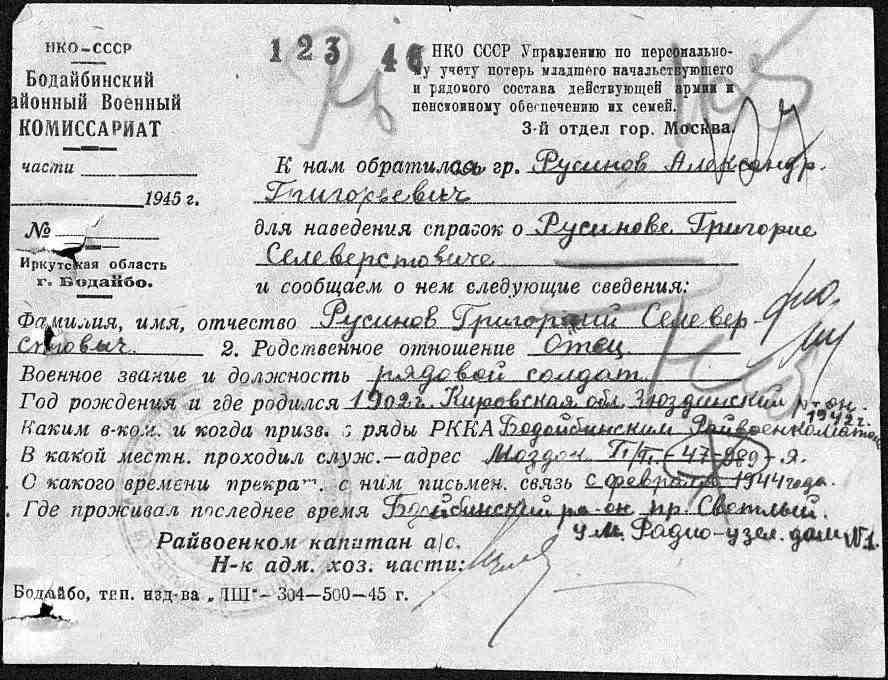 НКО–СССР
Бодайбинский
айонный Военный
КОМИССАРИАТ
части
1945 г.
№
Иркутская область
г. Бодайбо.
1 2 3 46
НКО СССР Управлению по персонально-
му учету потерь младшего начальствующего
и рядового состава действующей армии и
пенсионному обеспечению их семей.
3-й отдел гор. Москва.
К нам обратилась гр. Русинов Александр
Григорьевич
для наведения справок о Русинове Григорие
Селеверстовиче
и сообщаем о нем следующие сведения:
Фамилия, имя, отчество Русинов Григорий Селевер
стович. 2. Родственное отношение Отец
Военное звание и должность рядовой солдат
Год рождения и где родился 1902г. Кировская обл. Зюздинский р-он.
1942г.
Каким в-ком. и когда призв. с ряды РККА Бодойбинским Райвоенкоматом
В какой местн. проходил служ.–адрес Моздок П/П–47-989-я.
О какого времени прекрат. с ним письмен. связь с февраля 1944 года.
Где проживал последнее время Бодойбинский ра-он пр. Светлый.
ул. Радио-узел. дом №1.
Райвоенком капитан а/с.
Н-к адм. хоз. части:
Бодайбо, тип. изд-ва „ЛШ"– 304–500–45 г.